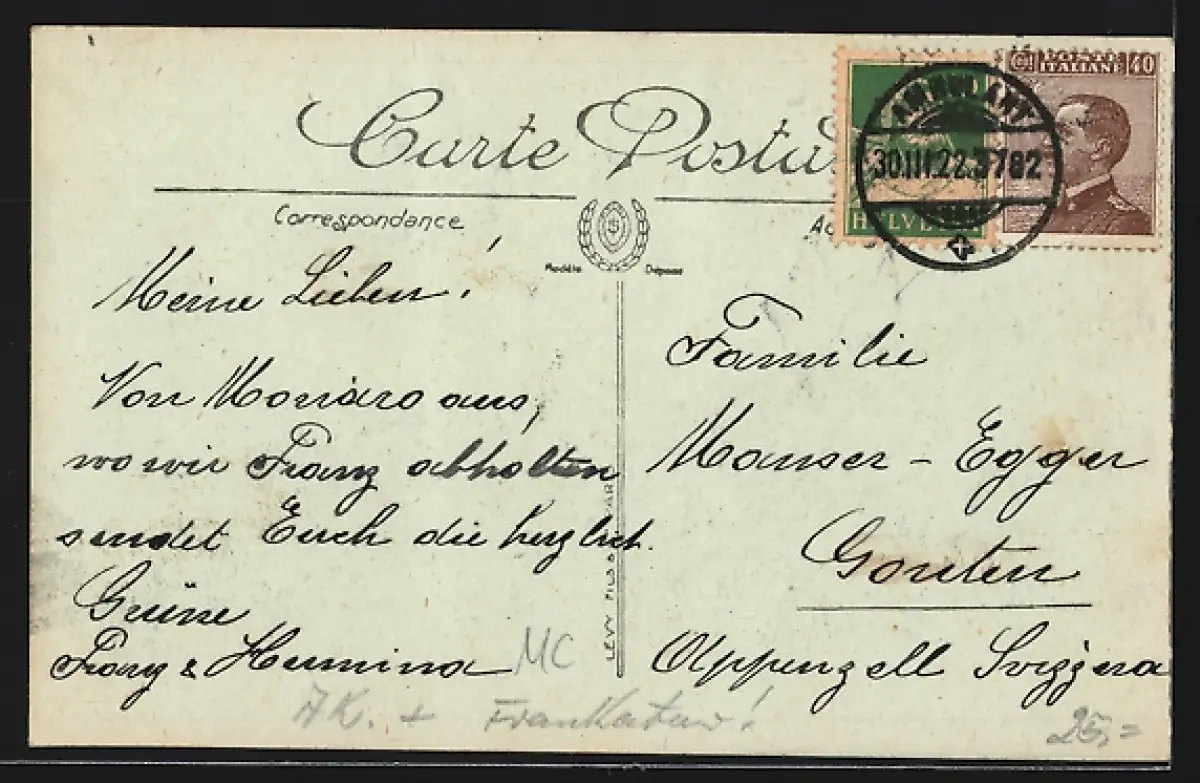 Carte Posta
Correspondance
Modèle Déposé
POSTE ITALIANE 40
AMBULANT
30.III.22. 3782
HELVE
Meine Lieben!
Von Monaco aus,
wo wir Franz abholten
sendet Euch die herzlich.
Grüsse
Franz & Hermina
Familie
Manser - Egger
Gonten
Appenzell Svizzera
LEVY FILS &
MC
AK. + Frankatur!
25,=